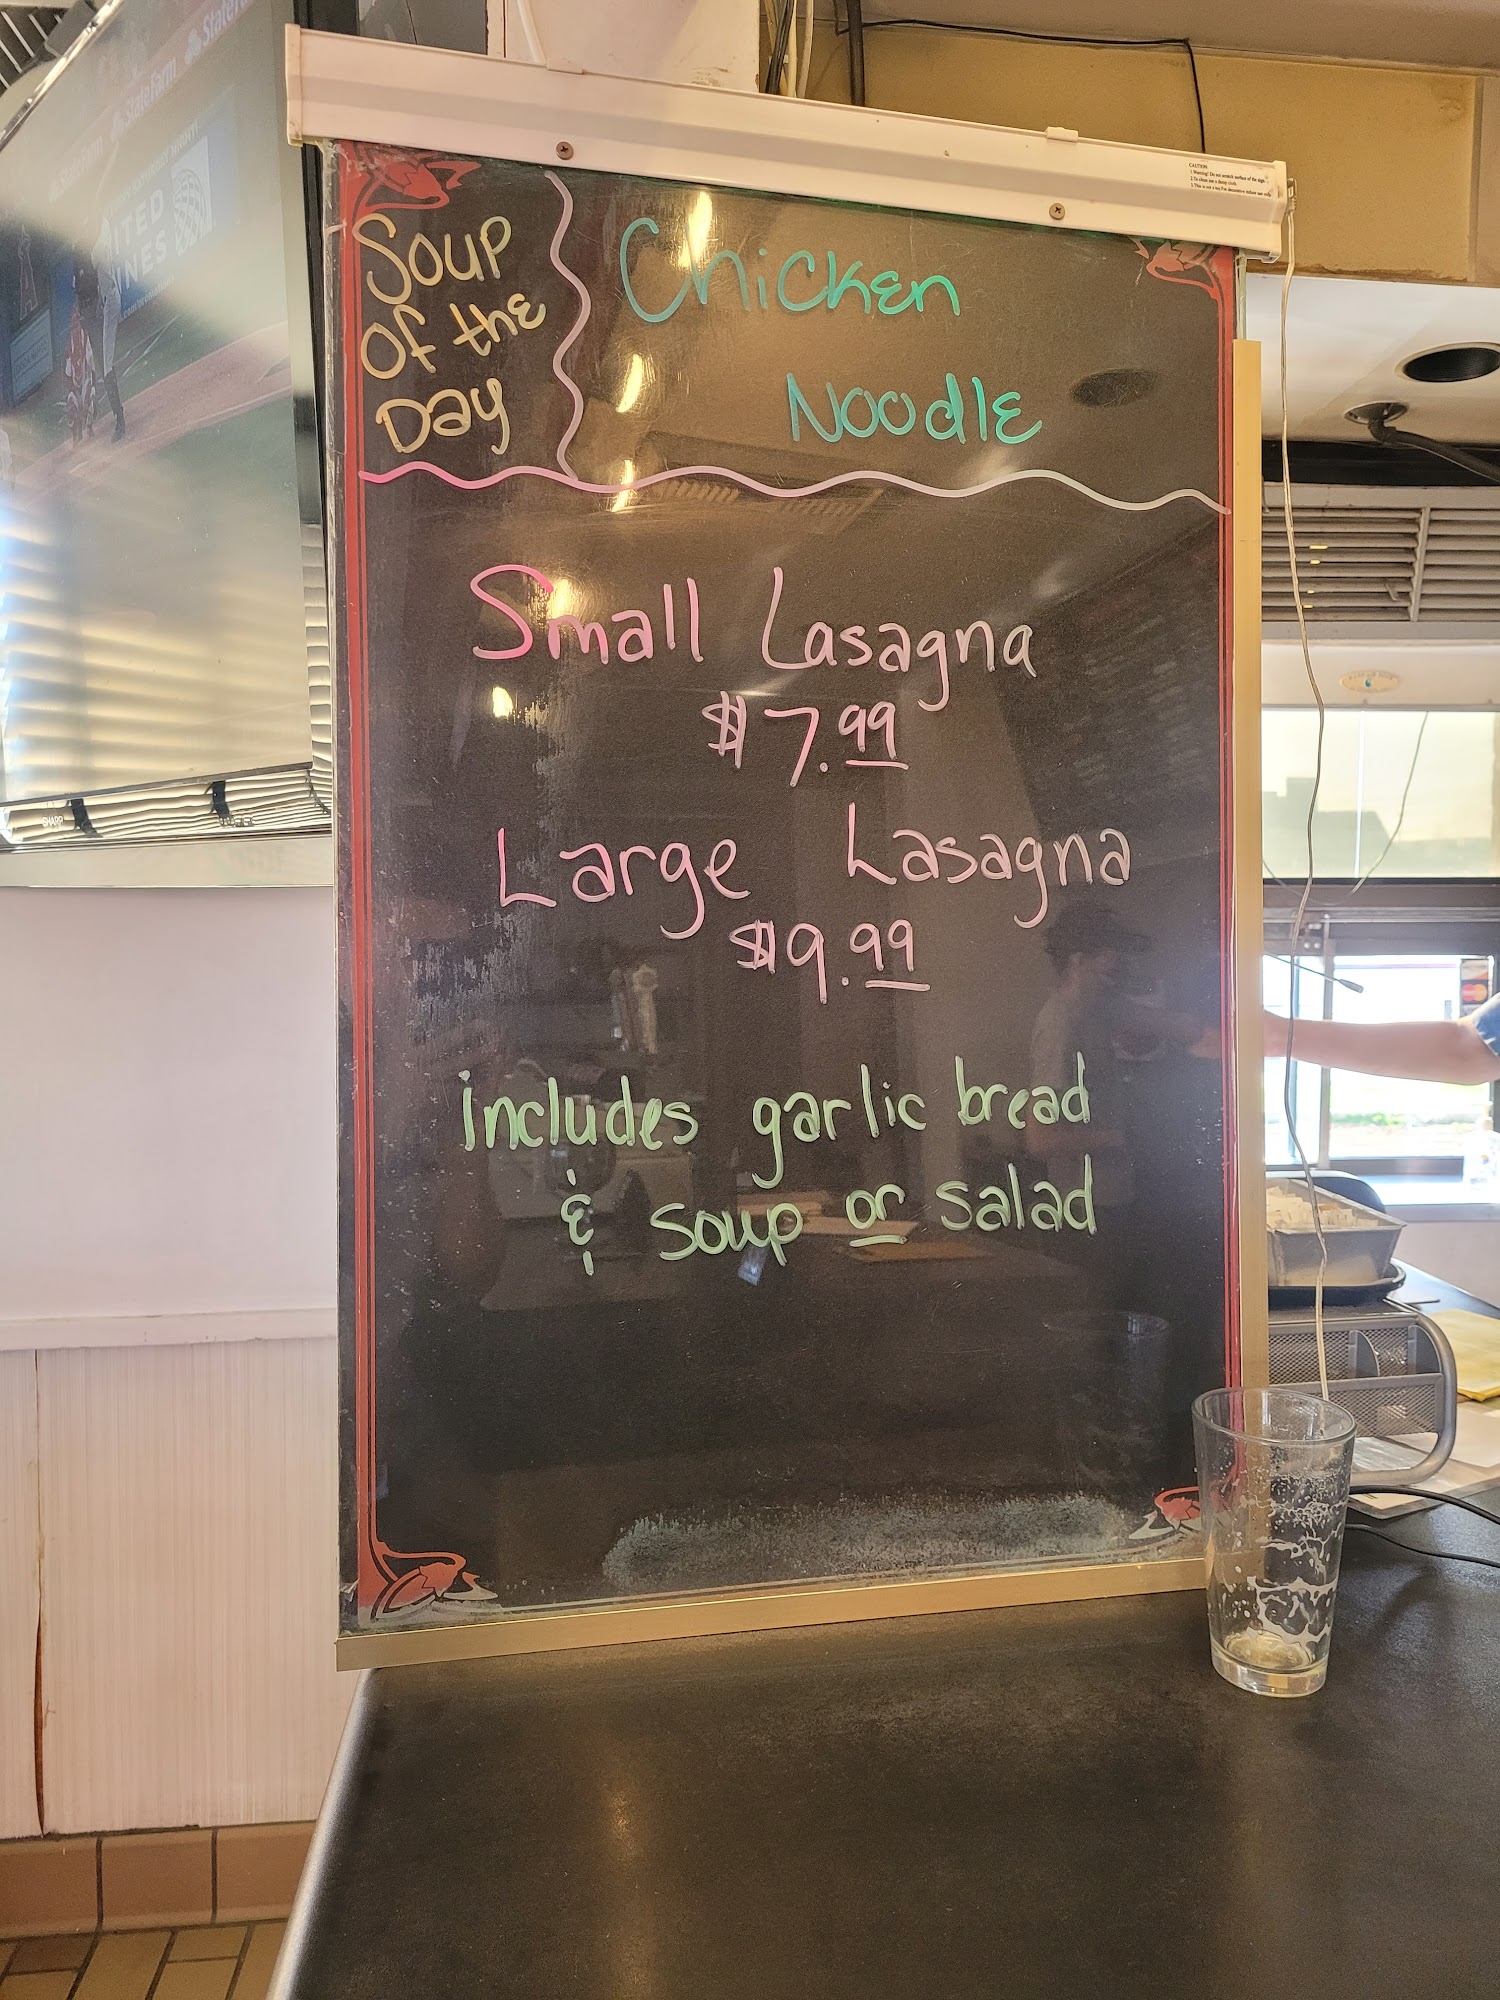 Soup
of the
Day
Chicken
Noodle
Small Lasagna
$7.99
Large Lasagna
$9.99
includes garlic bread
& soup or salad
StateFarm
StateFarm
SHARP
CAUTION: